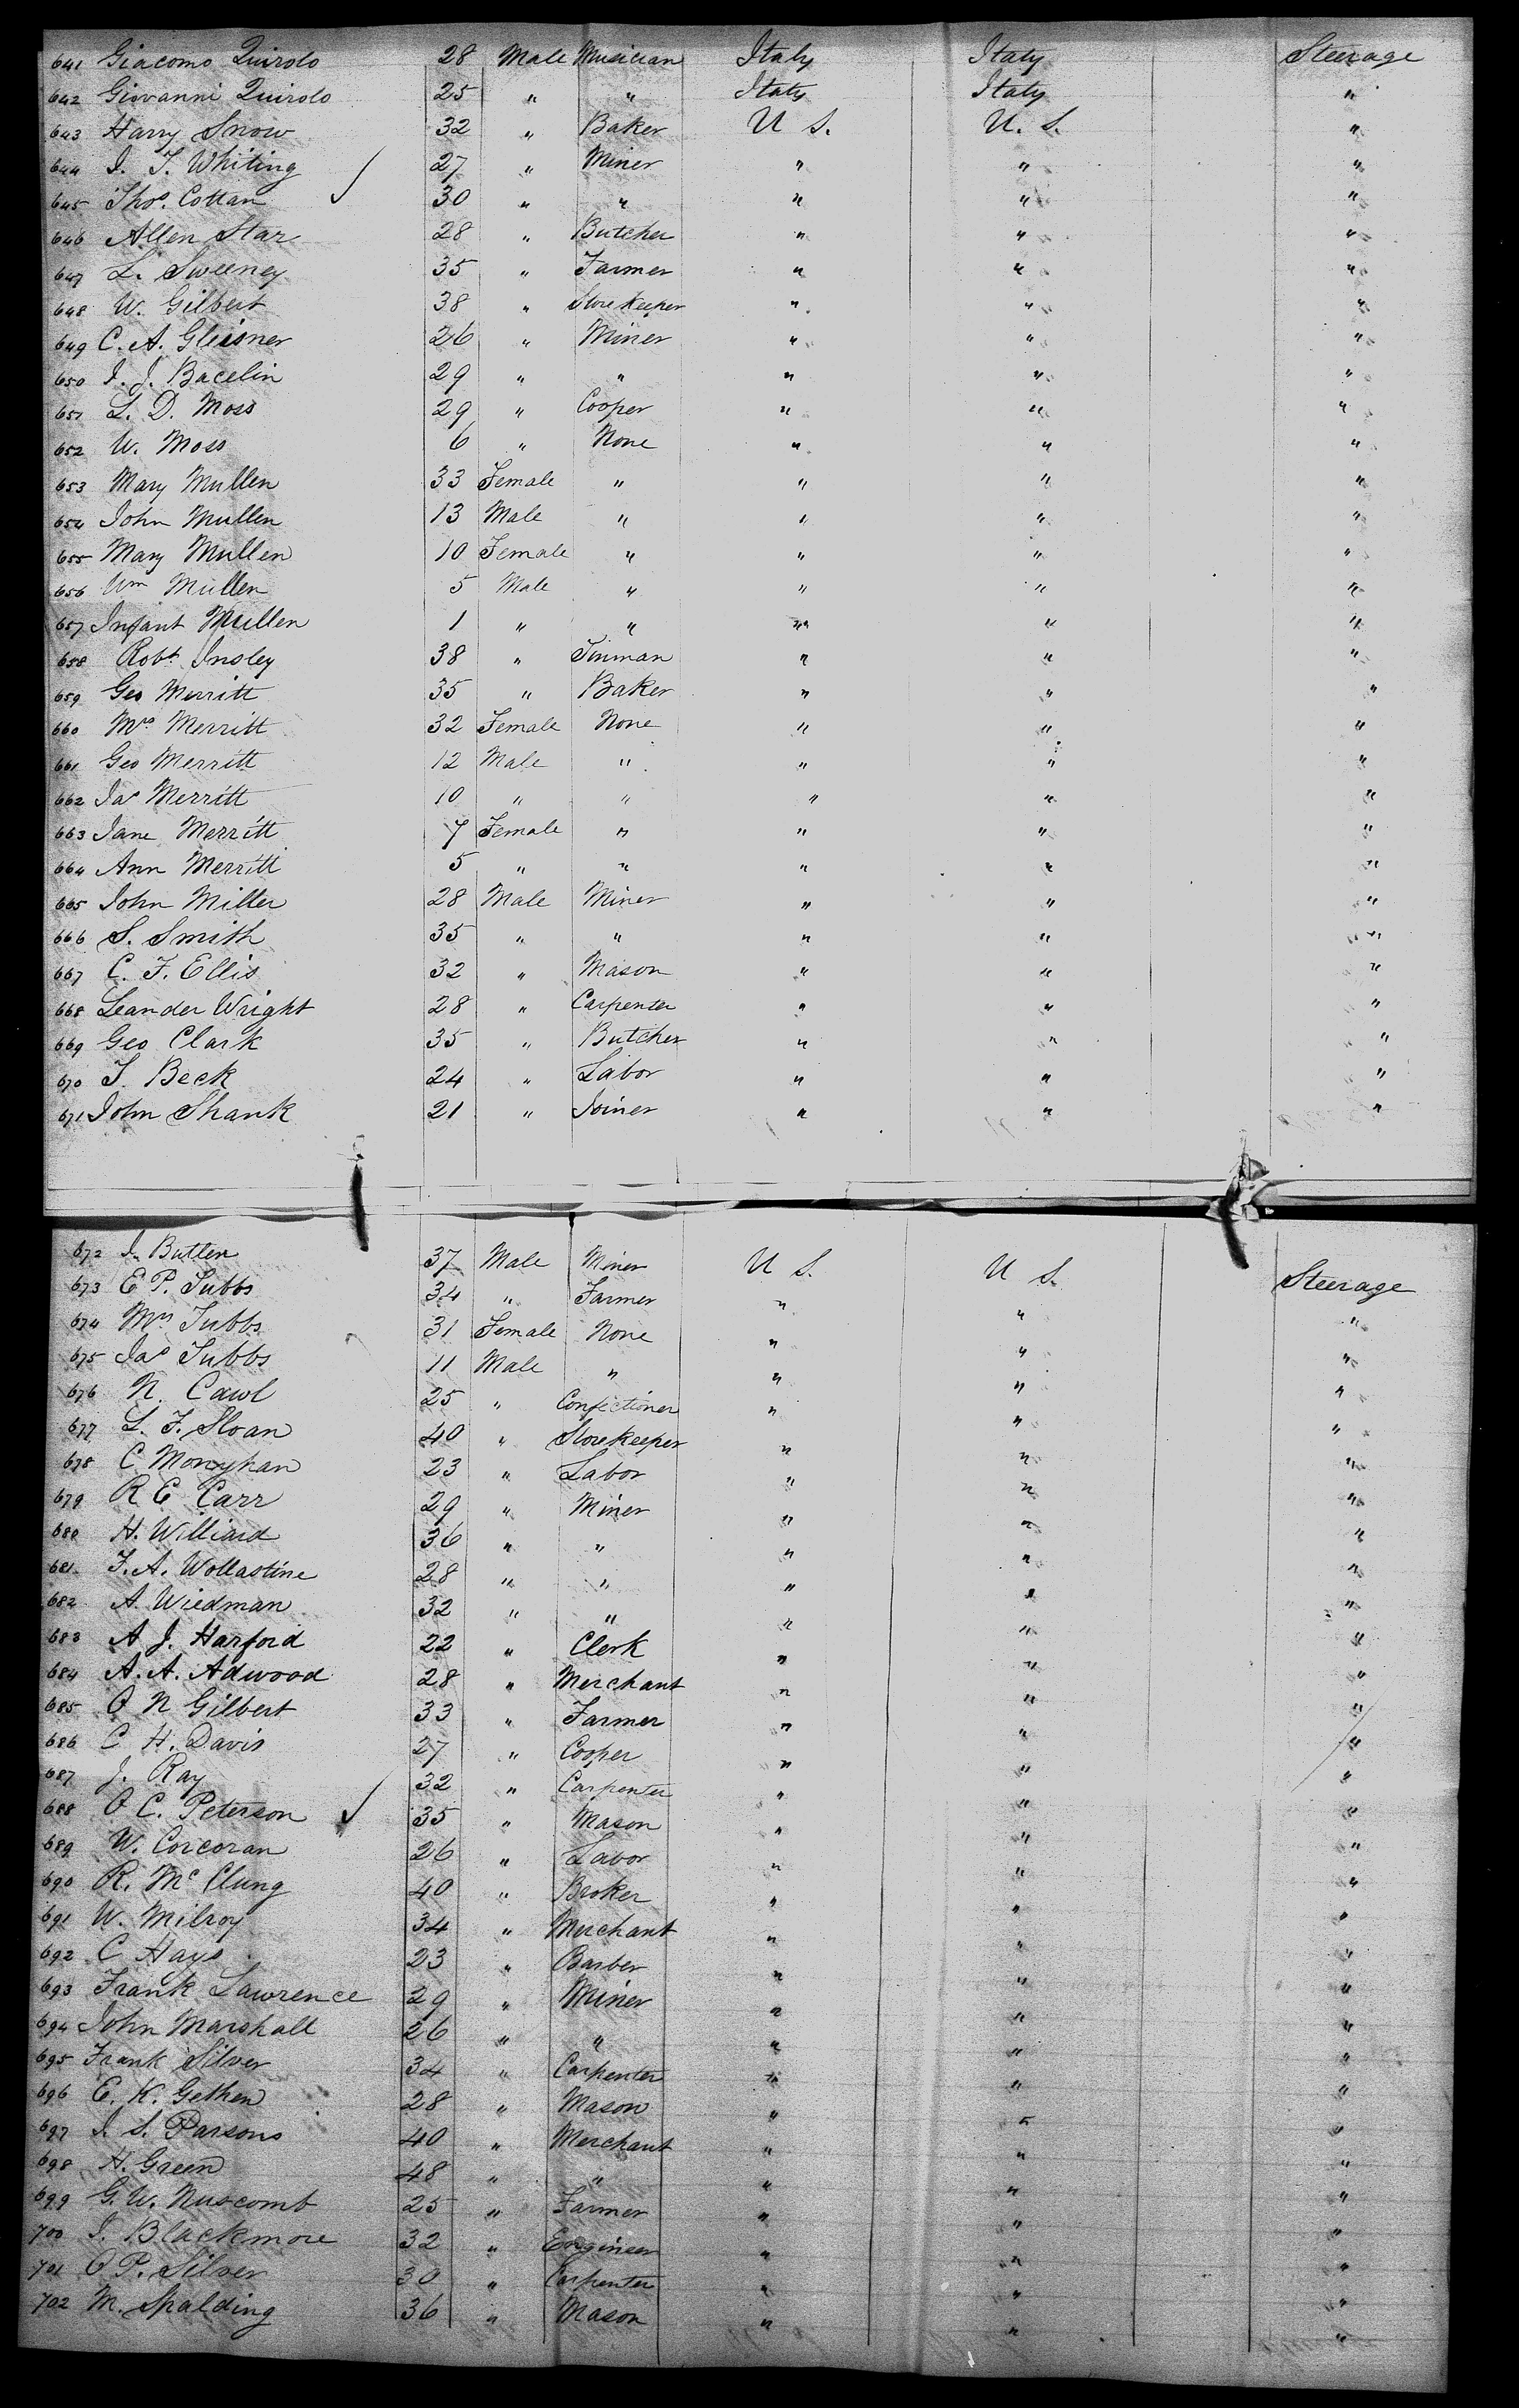 641 Giacomo Quirolo 28 Male Musician Italy Italy Steerage
642 Giovanni Quirolo 25 " " Italy Italy "
643 Harry Snow 32 " Baker U S. U. S. "
644 I. T. Whiting 27 " Miner " " "
645 Thos. Cottan 30 " " " " "
646 Allen Star 28 " Butcher " " "
647 L. Sweeney 35 " Farmer " " "
648 W. Gilbert 38 " Store Keeper " " "
649 C. A. Gleisner 26 " Miner " " "
650 I. J. Bacelin 29 " " " " "
651 L. D. Moss 29 " Cooper " " "
652 W. Moss 6 " None " " "
653 Mary Mullen 33 Female " " " "
654 John Mullen 13 Male " " " "
655 Mary Mullen 10 Female " " " "
656 Wm Mullen 5 Male " " " "
657 Infant Mullen 1 " " " " "
658 Robt Insley 38 " Tinman " " "
659 Geo Merritt 35 " Baker " " "
660 Mrs Merritt 32 Female None " " "
661 Geo Merritt 12 Male " " " "
662 Jas Merritt 10 " " " " "
663 Jane Merritt 7 Female " " " "
664 Ann Merritt 5 " " " " "
665 John Miller 28 Male Miner " " "
666 S. Smith 35 " " " " "
667 C. F. Ellis 32 " Mason " " "
668 Leander Wright 28 " Carpenter " " "
669 Geo Clark 35 " Butcher " " "
670 T. Beck 24 " Labor " " "
671 John Shank 21 " Joiner " " "
672 J. Butler 37 Male Miner U S. U S. Steerage
673 E P. Tubbs 34 " Farmer " " "
674 Mrs Tubbs 31 Female None " " "
675 Jas Tubbs 11 Male " " " "
676 N. Cawl 25 " Confectioner " " "
677 L. F. Sloan 40 " Storekeeper " " "
678 C Monyhan 23 " Labor " " "
679 R E Carr 29 " Miner " " "
680 H. Williard 36 " " " " "
681 F. A. Wollastine 28 " " " " "
682 A. Wiedman 32 " " " " "
683 A J. Harford 22 " Clerk " " "
684 A. A. Adwood 28 " Merchant " " "
685 O N Gilbert 33 " Farmer " " "
686 C H. Davis 27 " Cooper " " "
687 J. Ray 32 " Carpenter " " "
688 O C. Peterson 35 " Mason " " "
689 W. Corcoran 26 " Labor " " "
690 R. Mc Clung 40 " Broker " " "
691 W. Milroy 34 " Merchant " " "
692 C Hays 23 " Barber " " "
693 Frank Lawrence 29 " Miner " " "
694 John Marshall 26 " " " " "
695 Frank Silver 34 " Carpenter " " "
696 E. K. Gethen 28 " Mason " " "
697 I. S. Parsons 40 " Merchant " " "
698 H. Green 48 " " " " "
699 G. W. Nuscomb 25 " Farmer " " "
700 I. Blackmore 32 " Engineer " " "
701 O P. Silver 30 " Carpenter " " "
702 M. Spalding 36 " Mason " " "